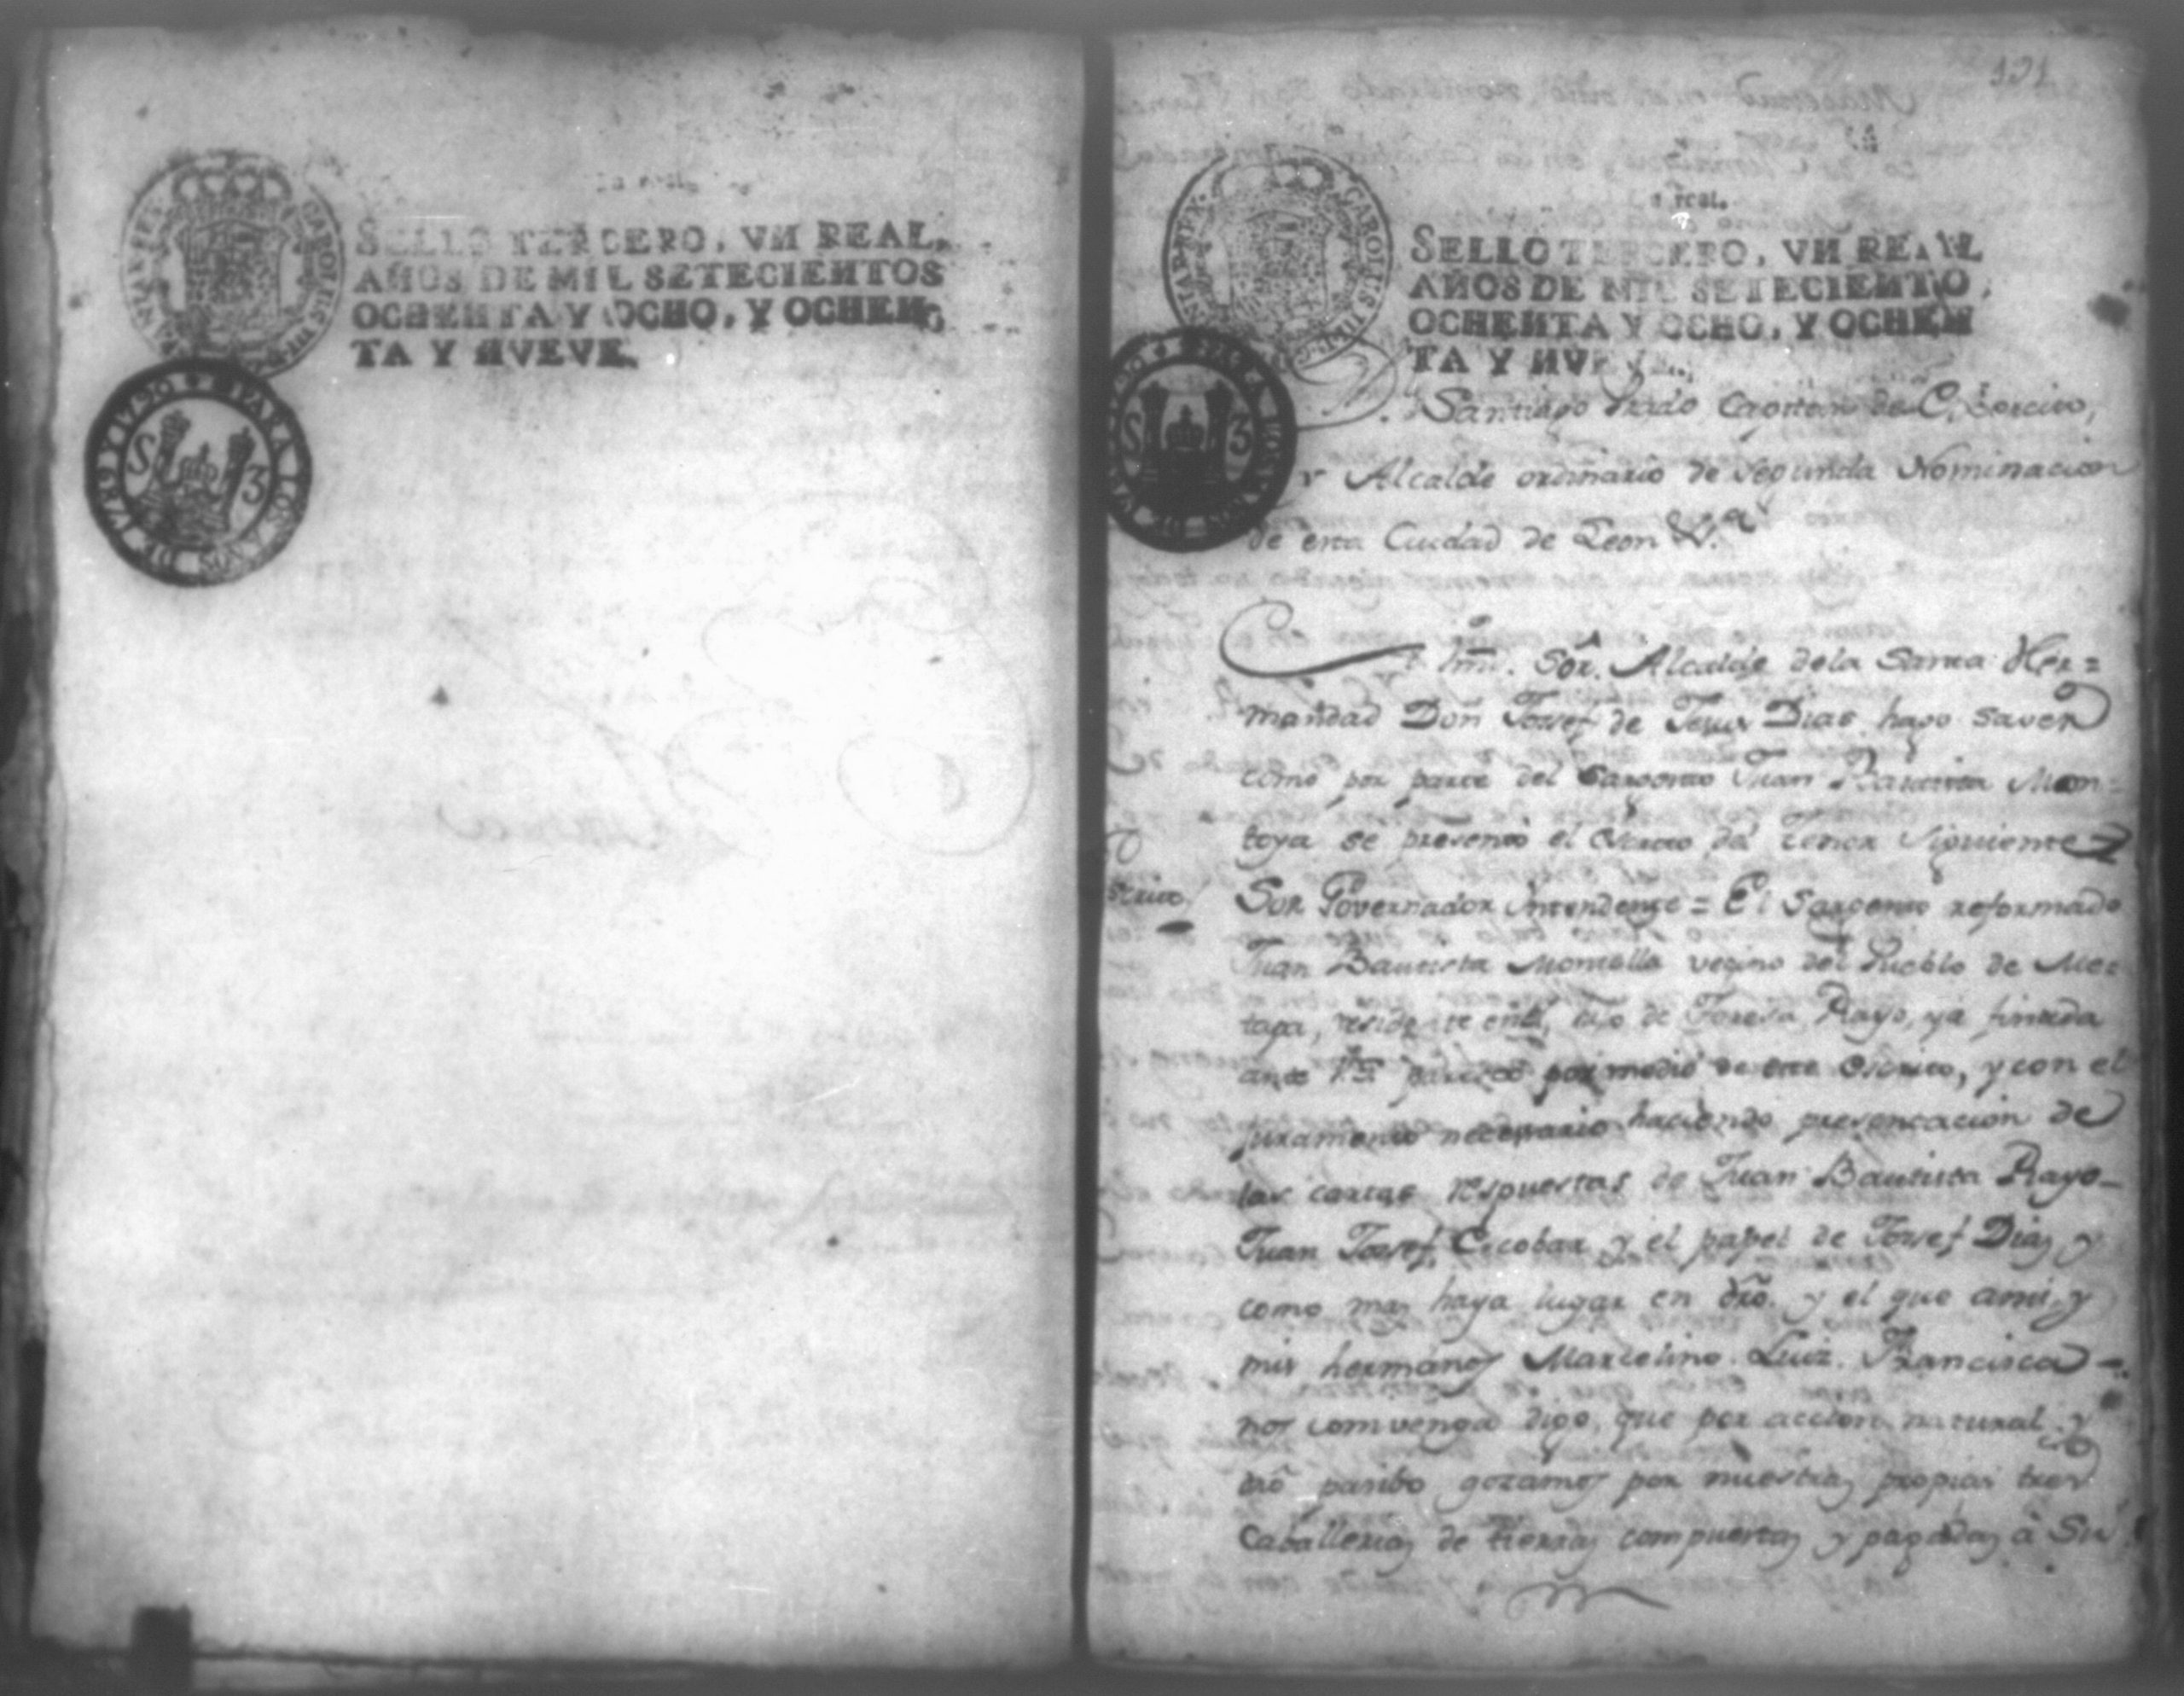 SELLO TERCERO, VN REAL,
AÑOS DE MIL SETECIENTOS
OCHENTA Y OCHO, Y OCHEN,
TA Y NVEVE.
PARA LOS AÑOS DE 1789 Y 1790
S 3
121
1 real.
CAROLUS III
SELLO TERCERO, VN REAL
AÑOS DE MIL SETECIENTO,
OCHENTA Y OCHO, Y OCHEN
TA Y NVEVE.
S 3
Santiago Prado Capitan de Exercito,
y Alcalde ordinario de Segunda Nominacion
de esta Ciudad de Leon &.ª
Sōr. Alcalde dela Santa Her=
mandad Don Josef de Jesus Dias hago saver
como por parte del Sargento Juan Bautista Mon=
toya se presentó el escrito del tenor siguiente
Sōr Governador Intendente = El Sargento reformado
Juan Bautista Montolla vezino del Pueblo de Me
tapa, residente en esta, hijo de Teresa Rayo, ya finada
ante VS. paresco por medio de este escrito, y con el
juramento necesario haciendo presentacion de
las cartas respuestas de Juan Bautista Rayo
Juan Josef Escobar y el papel de Josef Dias y
como mas haya lugar en dr̄o. y el que ami, y
mis hermanos Marcelino. Luiz. Francisca
nos comvenga digo, que por accion natural, y
dr̄o gozamos por nuestras propias tres
Caballerias de tierras compuestas y pagadas á Su